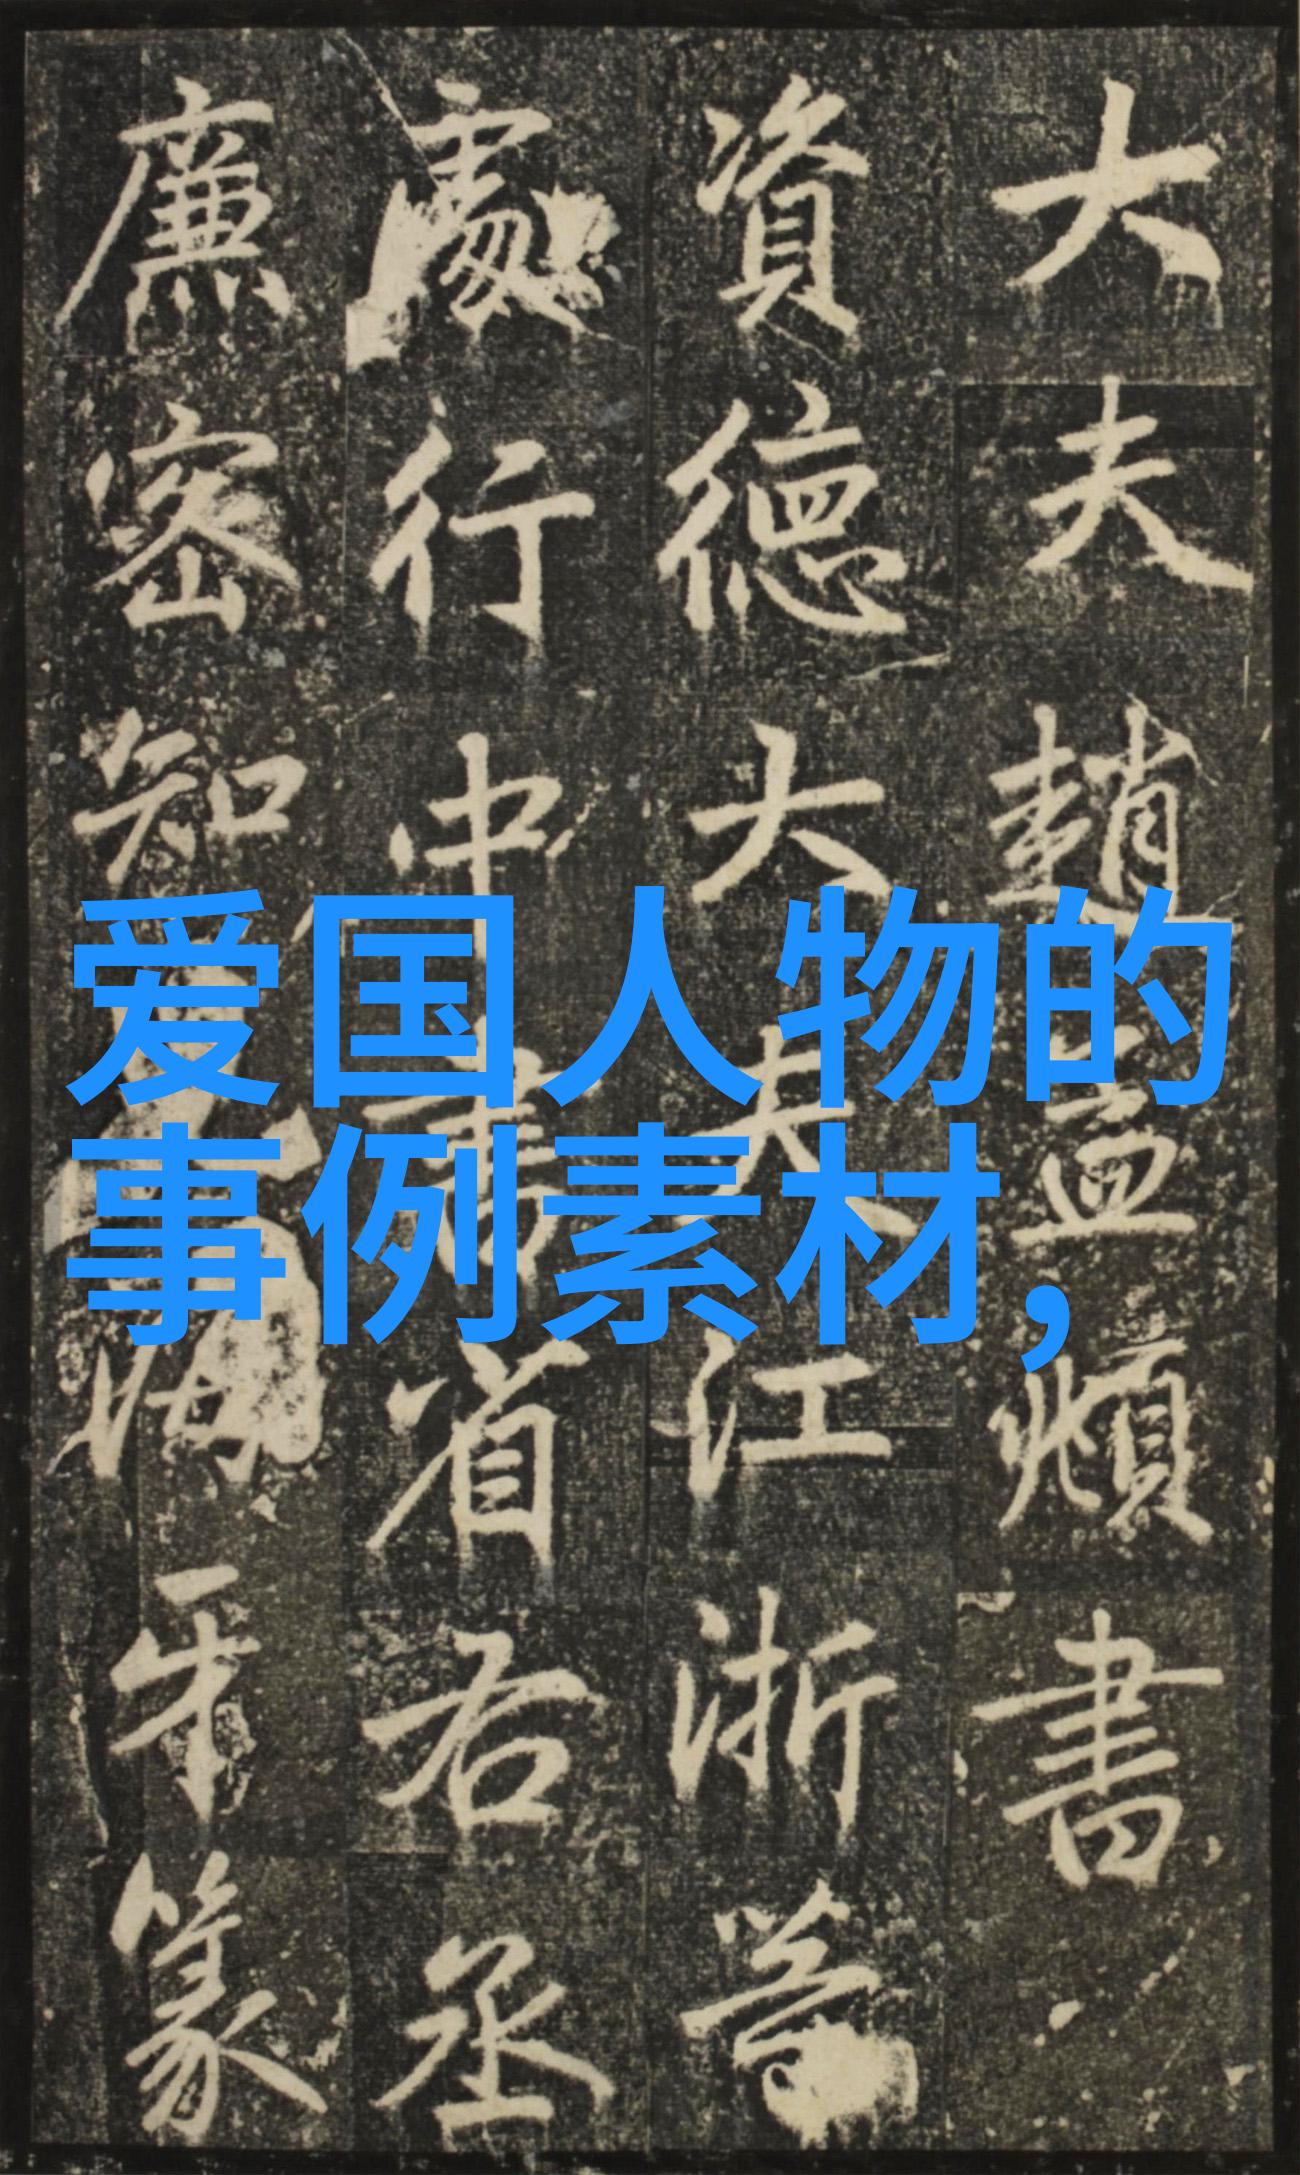 大夫趙孟頫書
資德大夫江浙等
處行中書省右丞
廉密知海牙篆
爱国人物的
事例素材，